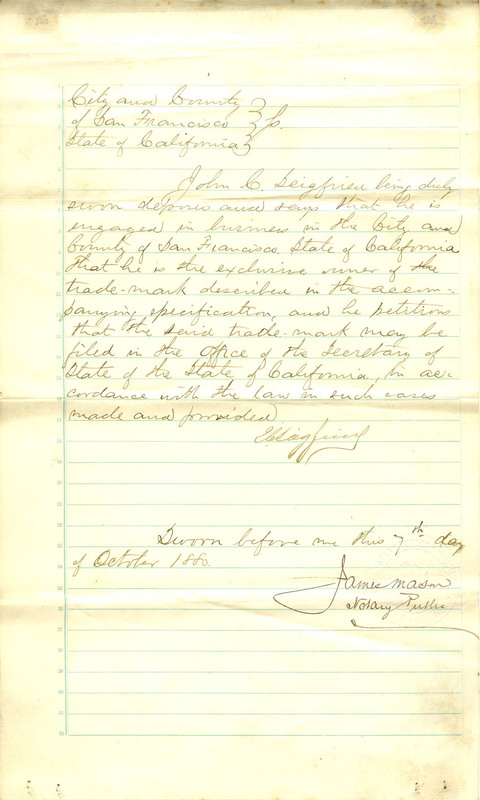 City and County
of San Francisco } ss.
State of California
John C. Seigfried being duly
sworn deposes and says that he is
engaged in business in the City and
County of San Francisco, State of California
that he is the exclusive owner of the
trade-mark described in the accom-
panying specification, and he petitions
that the said trade-mark may be
filed in the office of the Secretary of
State of the State of California, in ac-
cordance with the law in such cases
made and provided
Sworn before me this 7th day
of October 1880.
James Mason
Notary Public